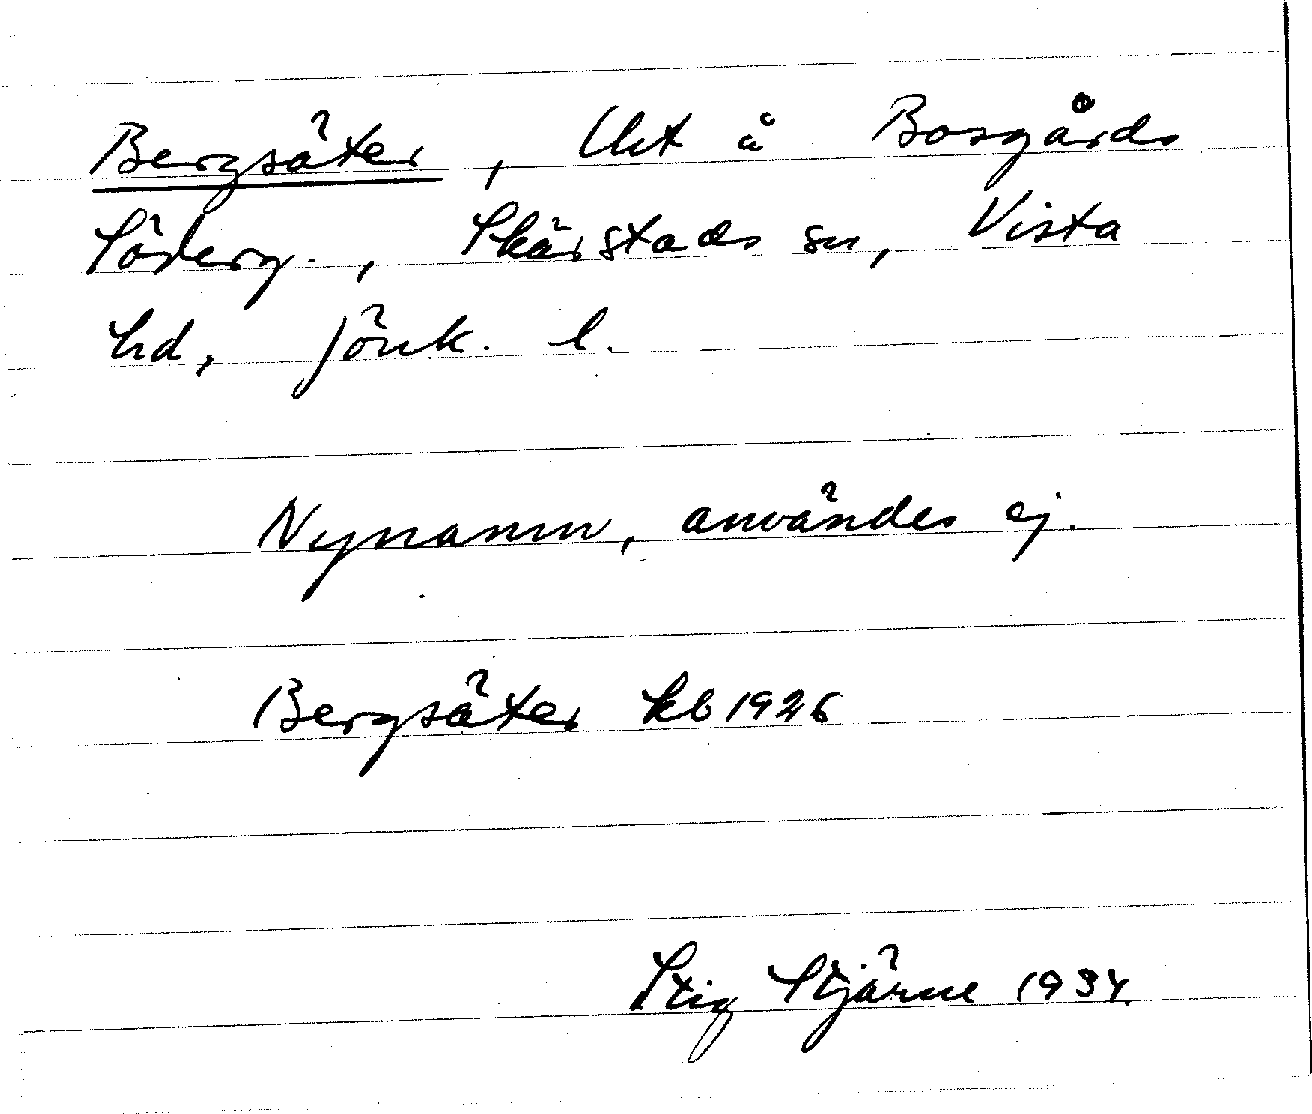 Bergsäter, Uet å Bosgårds
Söderg., Skärstads sn, Vista
hd, Jönk. l.
Nynamn, användes ej.
Bergsäter kb 1926
Stig Stjärne 1934.